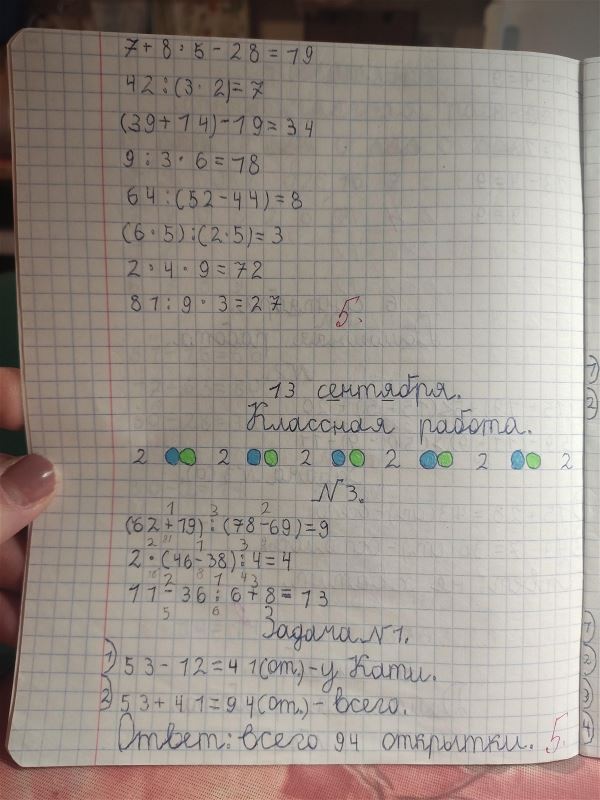 7+8·5-28=19
42:(3·2)=7
(39+14)-19=34
9:3·6=18
64:(52-44)=8
(6·5):(2·5)=3
2·4·9=72
81:9·3=27
5.
13 сентября.
Классная работа.
2 2 2 2 2 2
N3.
1 3 2
(62+19):(78-69)=9
2 1 3
2·(46-38):4=4
2 1 3
11-36:6+8=13
5 6
Задача N1.
1) 53-12=41(от.)-у Кати.
2) 53+41=94(от.)-всего.
Ответ: всего 94 открытки. 5.
1)
2)
1)
2)
3)
4)